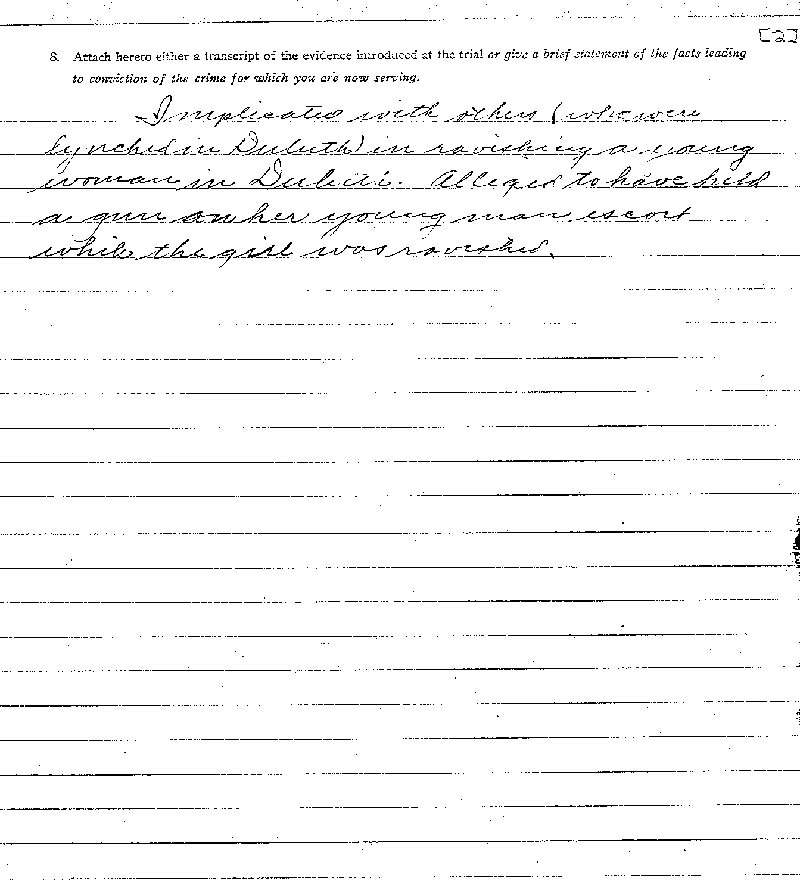 [2]
8. Attach hereto either a transcript of the evidence introduced at the trial or give a brief statement of the facts leading
to conviction of the crime for which you are now serving.
Implicated with others (who were
lynched in Duluth) in ravishing a young
woman in Duluth. Alleged to have held
a gun on her young man escort
while the girl was ravished.